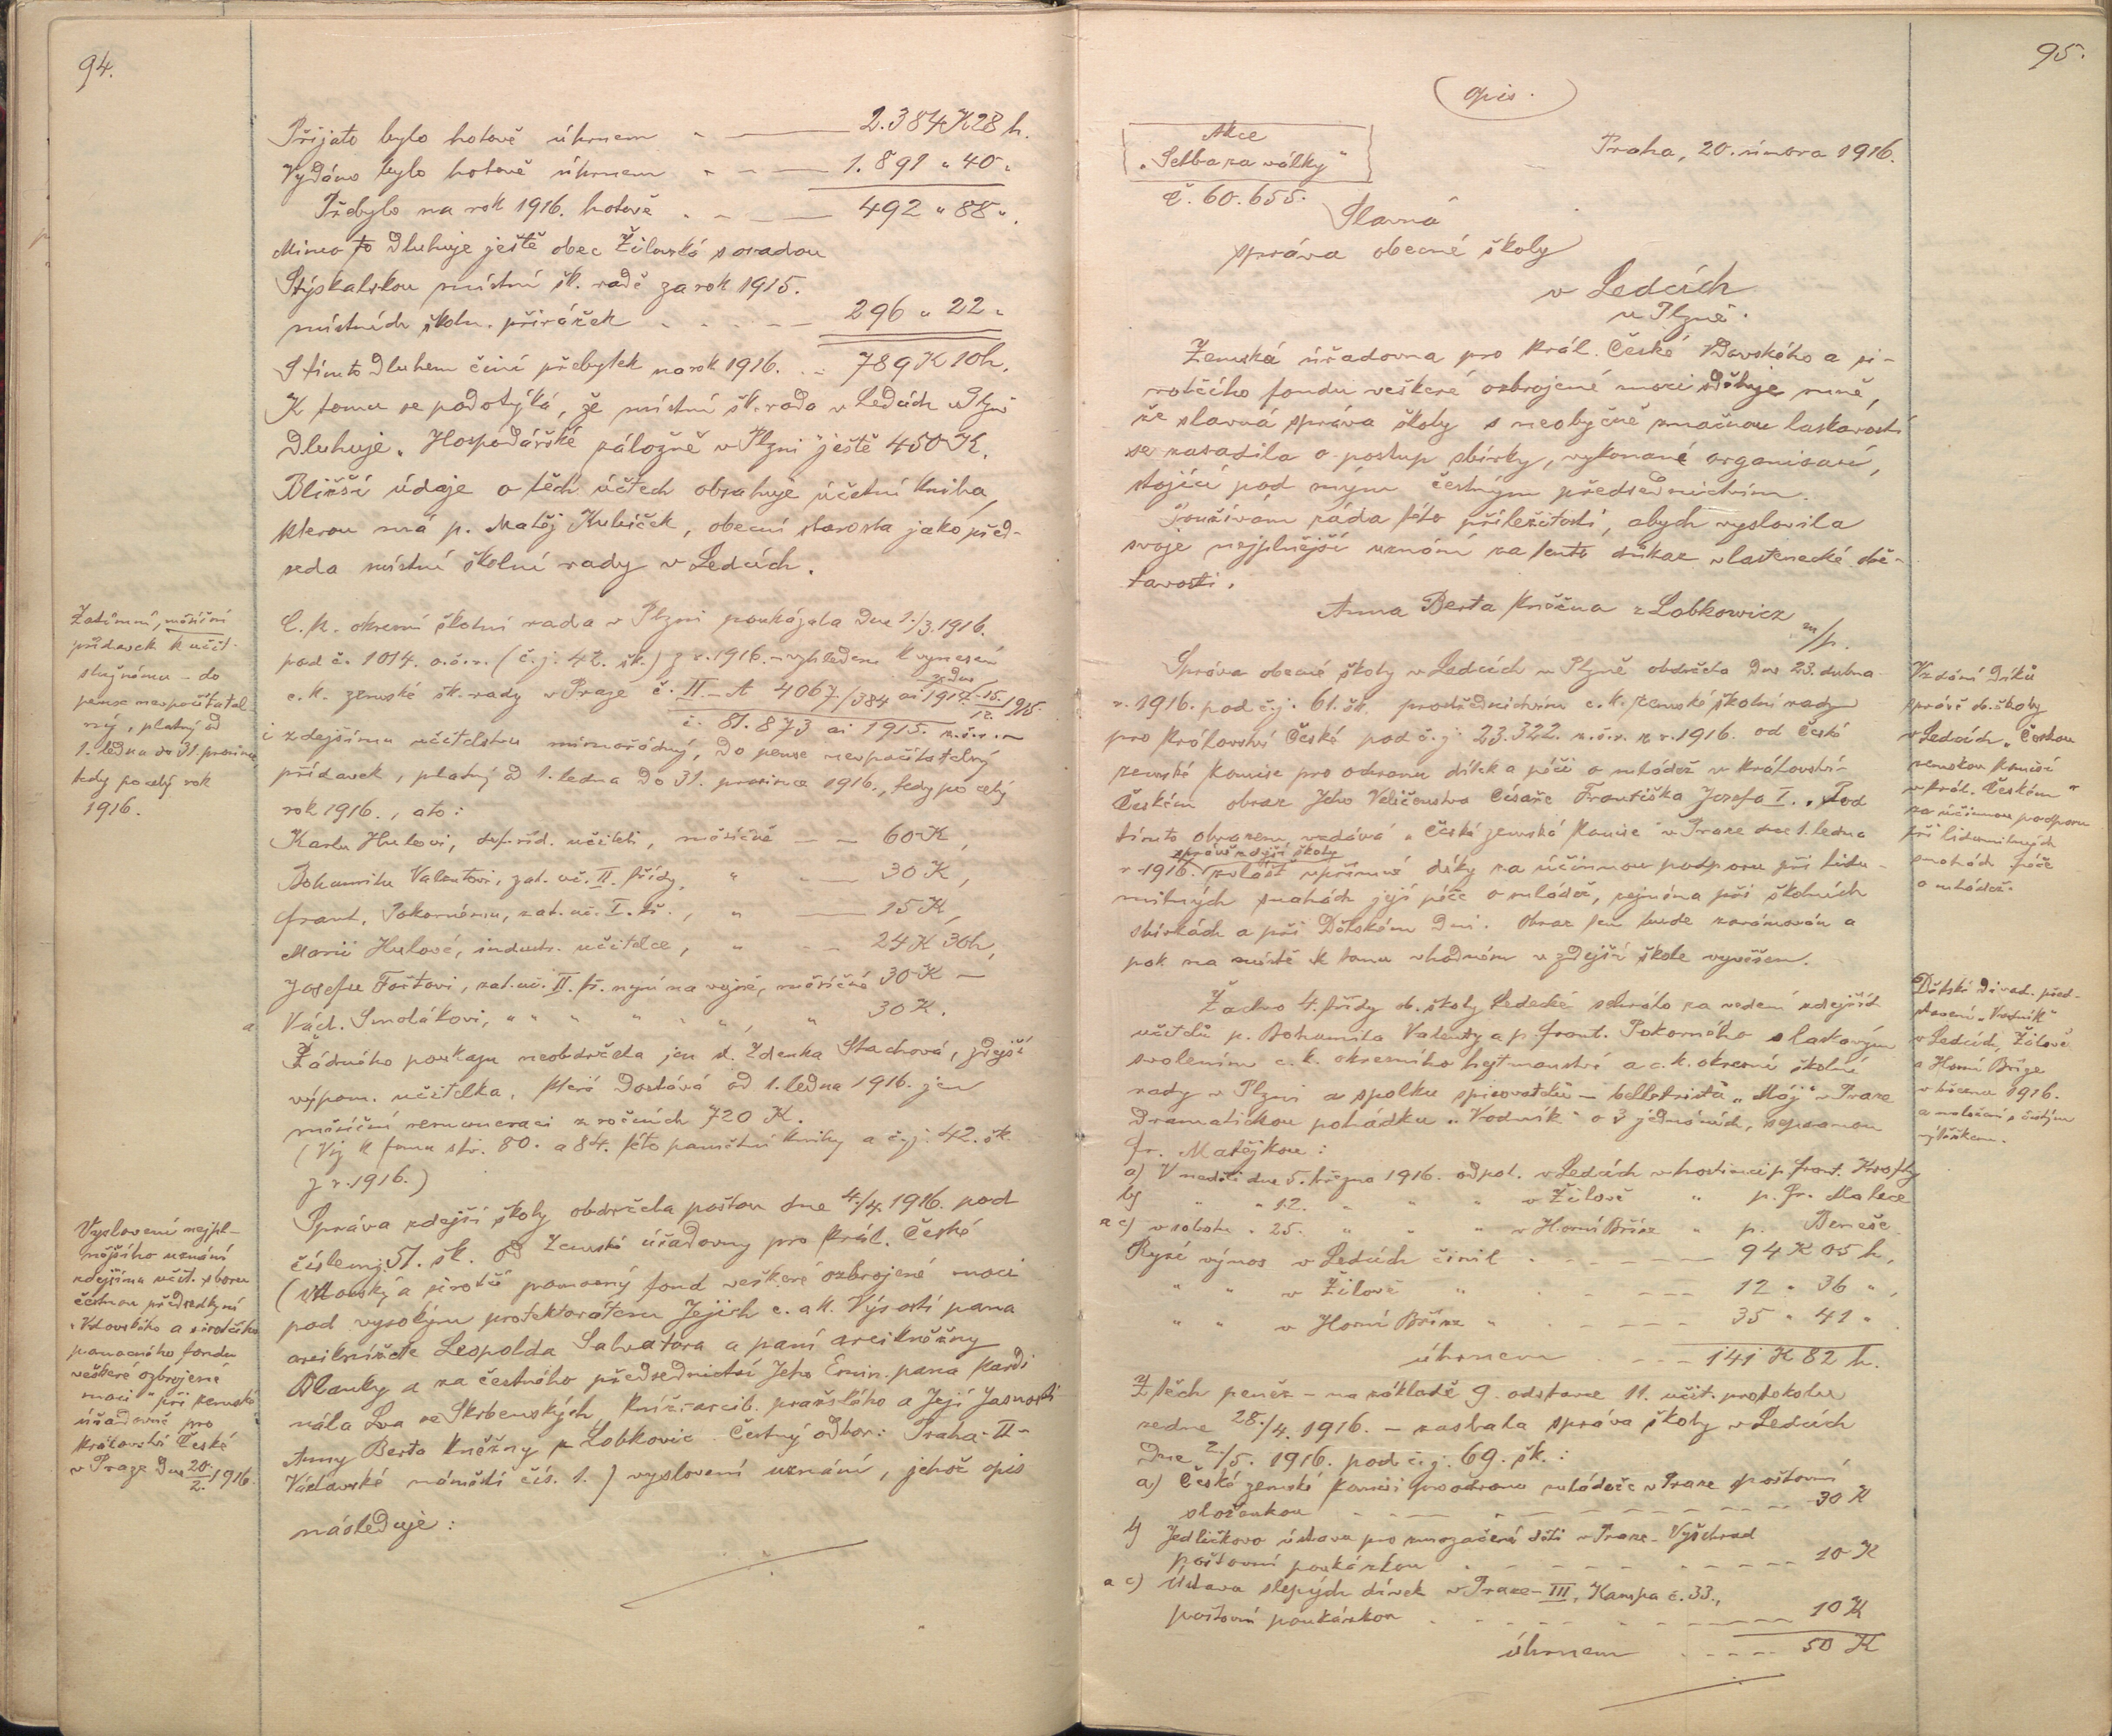 94.
Přijato bylo hotově úhrnem - — 2.384 K 28 h.
Vydáno bylo hotově úhrnem - - — 1.891 " 40 "
Přebylo na rok 1916. hotově . - - — 492 " 88 ".
Mimo to dluhuje ještě obec Žilovská s osadou
Stýskalskou místní šk. radě za rok 1915.
místních školn. přirážek . - . - - — 296 " 22 "
S tímto dluhem činí přebytek na rok 1916. .. 789 K 10 h.
K tomu se podotýká, že místní šk. rada v Ledcích u Plzně
dluhuje „Hospodářské záložně v Plzni" ještě 450 K.
Bližší údaje o těch účtech obsahuje účetní kniha,
kterou má p. Matěj Kubíček, obecní starosta jako před-
seda místní školní rady v Ledcích.
Zatímní, měsíční
přídavek k učit.
služnému - do
pense nevpočítatel-
ný, platný od
1. ledna do 31 prosince
tedy po celý rok
1916.
C. k. okresní školní rada v Plzni poukázala dne 1./3. 1916.
pod č. 1014. o. š. r. (č. j. 42. šk.) z r. 1916. - vzhledem k vynesení
c. k. zemské šk. rady v Praze č. II - A 4067/384 ai 1915 ze dne 15./12. 1915.
č. 81.873 ai 1915. z. š. r. -
i zdejšímu učitelstvu mimořádný, do pense nevpočítatelný
přídavek, platný od 1. ledna do 31. prosince 1916., tedy po celý
rok 1916., a to:
Karlu Hulovi, def. říd. učiteli, měsíčně — — 60 K,
Bohumilu Valentovi, zat. uč. II. třídy, " - — 30 K,
Frant. Pokornému, zat. uč. I. tř., " — 15 K,
Marii Hulové, industr. učitelce, " - — 24 K 30 h,
Josefu Foitovi, zat. uč. II. tř. nyní na vojně, měsíčně 30 K —
a Václ. Smolákovi, " " " " " " , " 30 K.
Žádného poukazu neobdržela jen sl. Zdenka Stachová, zdejší
výpom. učitelka, která dostává od 1. ledna 1916. jen
měsíční remuneraci z ročních 720 K.
(Viz k tomu str. 80. a 84. této pamětní knihy a č. j. 42. šk.
z r. 1916.)
Vyslovení nejpl-
nějšího uznání
zdejšímu učit. sboru
čestnou předsedkyní
„Vdovského a sirotčího
pomocného fondu
veškeré ozbrojené
moci" při zemské
úřadovně pro
království České
v Praze dne 20./2. 1916.
Správa zdejší školy obdržela poštou dne 4./4. 1916. pod
čís. jedn. 51. šk. od Zemské úřadovny pro král. České
(Vdovský a sirotčí pomocný fond veškeré ozbrojené moci
pod vysokým protektorátem Jejich c. a k. Výsostí pana
arciknížete Leopolda Salvatora a paní arcikněžny
Blanky a za čestného předsednictví Jeho Emin. pana kardi-
nála Lva ze Skrbenských, knížete arcib. pražského a Její Jasnosti
Anny Berta kněžny z Lobkovic. Čestný odbor: Praha-II-
Václavské náměstí čís. 1.) vyslovení uznání, jehož opis
následuje:
95.
Opis.
Akce
„Setba za války"
č. 60.655.
Praha, 20. února 1916.
Slavná
správa obecné školy
v Ledcích
u Plzně.
Zemská úřadovna pro král. České Vdovského a si-
rotčího fondu veškeré ozbrojené moci sděluje mně,
že slavná správa školy s neobyčejně značnou laskavostí
se zasadila o postup sbírky, vykonané organisací,
stojící pod mým čestným předsednictvím.
Používám ráda této příležitosti, abych vyslovila
svoje nejplnější uznání za tento důkaz vlastenecké obě-
tavosti.
Anna Berta kněžna z Lobkowicz m/p.
Vzdání díků
správě ob. školy
v Ledcích „Českou
zemskou komisí
v král. Českém"
za účinnou podporu
při lidumilných
snahách péče
o mládež.
Správa obecné školy v Ledcích u Plzně obdržela dne 23. dubna
r. 1916. pod č. j. 61. šk. prostřednictvím c. k. zemské školní rady
pro království České pod č. j. 23.322. z. š. r. z r. 1916. od České
zemské komise pro ochranu dítek a péči o mládež v království
Českém obraz Jeho Veličenstva Císaře Františka Josefa I. Pod
tímto obrazem vzdává „Česká zemská komise" v Praze dne 1. ledna
r. 1916. správě zdejší školy zvlášť upřímné díky za účinnou podporu při lidu-
milných snahách její péče o mládež, zejména při školních
sbírkách a při Dětském dni. Obraz ten bude zarámován a
pak na místě k tomu vhodném v zdejší škole vyvěšen.
Dětské divad. před-
stavení „Vodník"
v Ledcích, Žilově
a Horní Bříze
v březnu 1916.
a naložení s čistým
výtěžkem.
Žactvo 4. třídy ob. školy Ledecké sehrálo za vedení zdejších
učitelů p. Bohumila Valenty a p. Frant. Pokorného s laskavým
svolením c. k. okresního hejtmanství a c. k. okresní školní
rady v Plzni a spolku spisovatelů - belletristů „Máj" v Praze
dramatickou pohádku „Vodník" o 3 jednáních, sepsanou
Fr. Matějkou:
a) V neděli dne 5. března 1916. odpol. v Ledcích v hostinci p. Frant. Krofty
b) " " 12. " " " v Žilově " p. Fr. Malece
a c) v sobotu " 25. " " " v Horní Bříze " p. Beneše.
Ryzí výnos v Ledcích činil . - - - - — 94 K 05 h,
" " v Žilově " . - - - - 12 " 36 ",
" " v Horní Bříze " . - - - - 35 " 41 ".
úhrnem . - - - 141 K 82 h.
Z těch peněz - na základě 9. odstavce 11. učit. protokolu
ze dne 28./4. 1916. - zaslala správa školy v Ledcích
dne 2./5. 1916. pod č. j. 69. šk.:
a) České zemské komisi pro ochranu mládeže v Praze poštovní
složenkou - - - - - - - - 30 K
b) Jedličkovu ústavu pro zmrzačené děti v Praze - Vyšehrad
poštovní poukázkou . - - - - - - 10 K
a c) Ústavu slepých dívek v Praze-III, Kampa č. 33.,
poštovní poukázkou . - - - - - — 10 K
úhrnem . - - - - 50 K